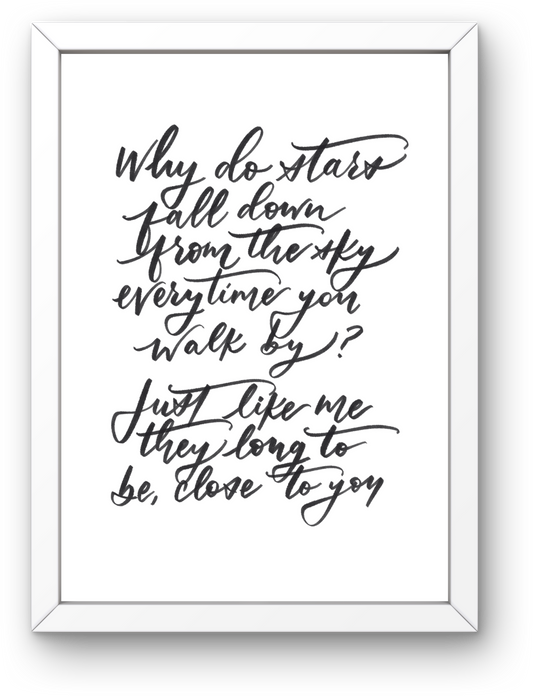 Why do stars
fall down
from the sky
everytime you
walk by?
Just like me
they long to
be, close to you